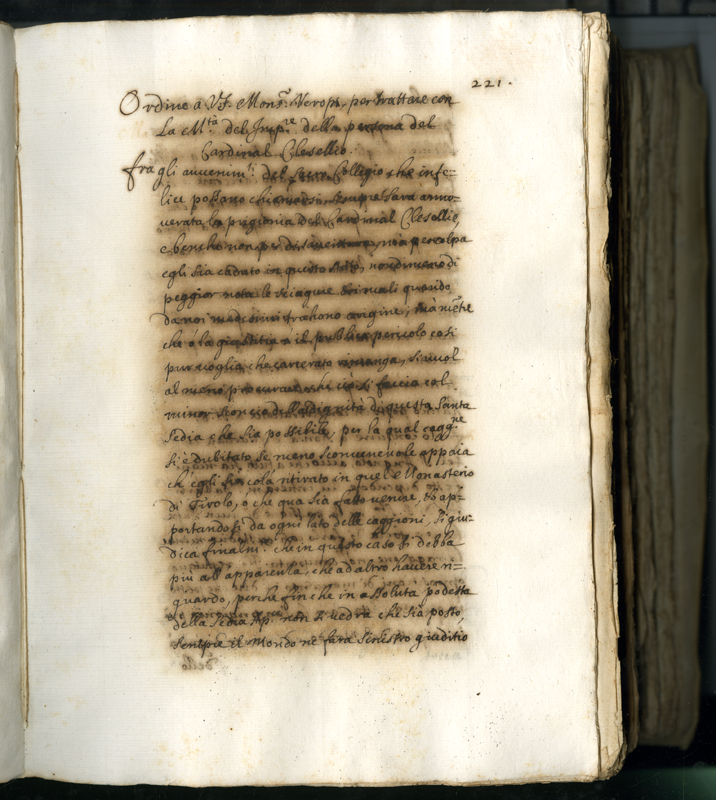 221.
Ordine a V.S. Mons.r Verosp. per trattare con
La M.tà del Imp.re della persona del
Cardinal Cleselio.
fra gli avvenim.ti del Sacro Collegio che infe=
lice possano chiamarsi sempre sarà anno=
verata la prigionia del Cardinal Cleselio,
e benche non per disaventura, mà per colpa
egli sia caduto in questo stato, nondimeno di
peggior nota le sciagure quando
da noi medesimi trahono origine; mà
che ò la giustitia ò il publico pericolo così
pur voglia che carcerato rimanga, si vuol
al meno procurare che ciò si faccia col
minor della dignità di questa Santa
Sedia che sia possibile, per la qual cagg.ne
si è dubitato se meno sconvenevole appaia
ch'egli sia colà ritirato in quel Monasterio
di Tirolo, ò che qua sia fatto venire, et ap=
portandosi da ogni lato delle caggioni, si giu=
dica finalm.te che in questo caso si debba
più all'apparenza, che ad altro havere ri=
guardo, perche fin che in assoluta podestà
della Sedia Ap.ca non si vedrà che sia posto,
sempre il Mondo ne farà sinistro giuditio
dello